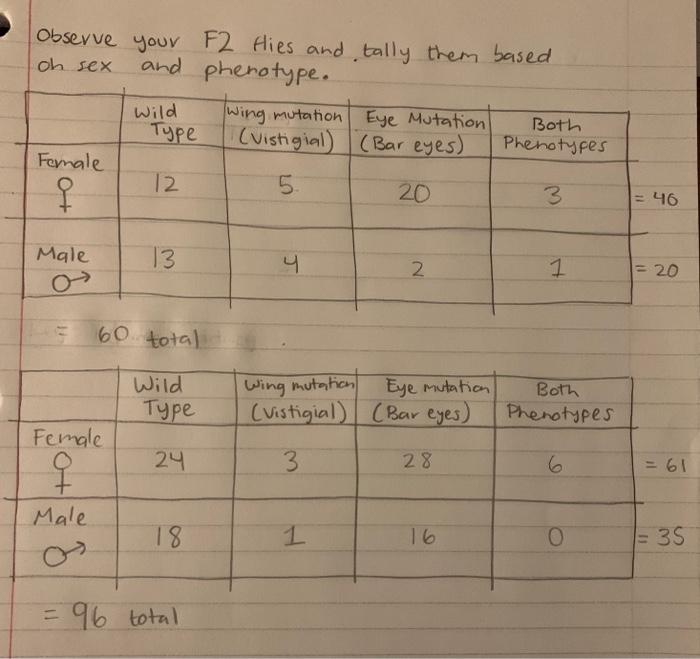 Observe your F2 flies and tally them based
on sex and phenotype.
Wild Type Wing mutation (Vistigial) Eye Mutation (Bar eyes) Both Phenotypes
Female ♀ 12 5 20 3 = 40
Male ♂ 13 4 2 1 = 20
= 60 total
Wild Type Wing mutation (Vistigial) Eye mutation (Bar eyes) Both Phenotypes
Female ♀ 24 3 28 6 = 61
Male ♂ 18 1 16 0 = 35
= 96 total